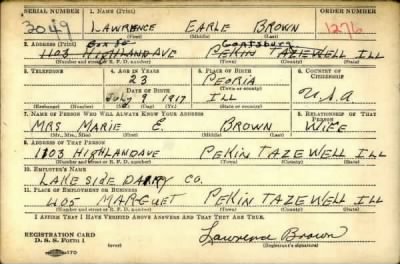 SERIAL NUMBER 1. NAME (Print) ORDER NUMBER
3049 LAWRENCE EARLE BROWN 1276
(First) (Middle) (Last)
2. ADDRESS (Print) Box 56 Gantsburg
1103 HIGHLAND AVE PEKIN TAZEWELL ILL
(Number and street or R. F. D. number) (Town) (County) (State)
3. TELEPHONE 4. AGE IN YEARS 5. PLACE OF BIRTH 6. COUNTRY OF CITIZENSHIP
23 PEORIA
DATE OF BIRTH (Town or county)
July 9 1917 ILL U.S.A
(Exchange) (Number) (Mo.) (Day) (Yr.) (State or country)
7. NAME OF PERSON WHO WILL ALWAYS KNOW YOUR ADDRESS 8. RELATIONSHIP OF THAT PERSON
MRS MARIE E. BROWN WIFE
(Mr., Mrs., Miss) (First) (Middle) (Last)
9. ADDRESS OF THAT PERSON
1103 HIGHLAND AVE PEKIN TAZEWELL ILL
(Number and street or R. F. D. number) (Town) (County) (State)
10. EMPLOYER'S NAME
LAKE SIDE DAIRY CO.
11. PLACE OF EMPLOYMENT OR BUSINESS
405 MARGUET PEKIN TAZEWELL ILL
(Number and street or R. F. D. number) (Town) (County) (State)
I AFFIRM THAT I HAVE VERIFIED ABOVE ANSWERS AND THAT THEY ARE TRUE.
REGISTRATION CARD
D. S. S. Form 1 Lawrence Brown
(Registrant's signature)